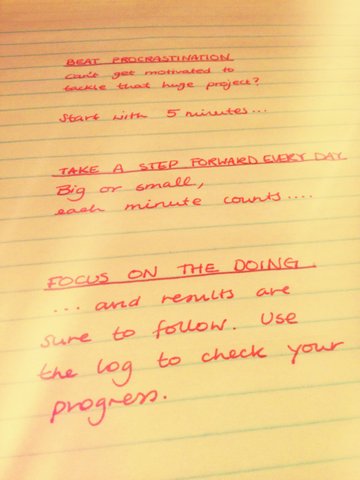 BEAT PROCRASTINATION
Can't get motivated to
tackle that huge project?
Start with 5 minutes...
TAKE A STEP FORWARD EVERY DAY
Big or small,
each minute counts....
FOCUS ON THE DOING
... and results are
sure to follow. Use
the log to check your
progress.